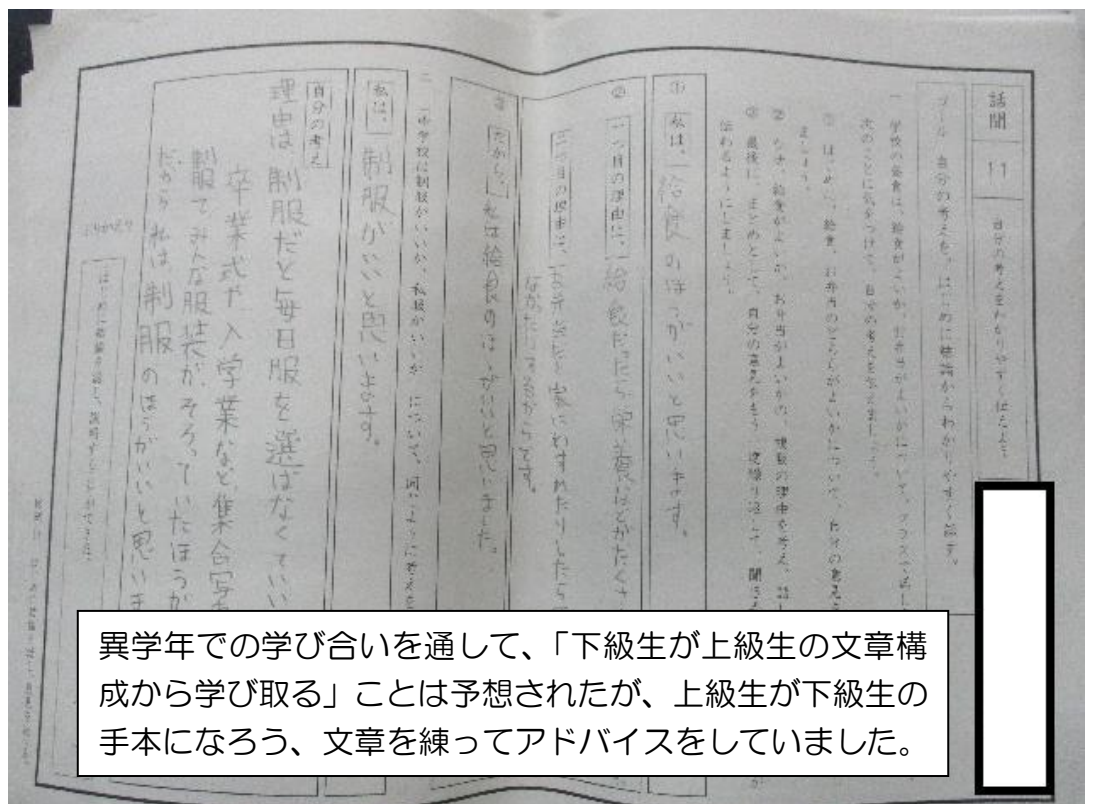 話聞
11
自分の考えをわかりやすく伝えよう
ゴール 自分の考えを、はじめに結論からわかりやすく話す。
一 学校の昼食は、給食がよいか、お弁当がよいかについて、クラスで話し
次のことに気をつけて、自分の考えを
① はじめに、給食、お弁当のどちらがよいかについて、自分の意見
ましょう。
② なぜ、給食がよいか、お弁当がよいかの、複数の理由を考え、話し
③ 最後に、まとめとして、自分の意見をもう一度繰り返して、聞き
伝わるようにしましょう。
① 私は、給食のほうがいいと思います。
② 一つ目の理由は、給食だったら栄養などがたくさ
二つ目の理由は、お弁当だと家にわすれたりしたら
なかったりするからです。
③ だから、私は給食のほうがいいと思いました。
二 中学校は制服がいいか、私服がいいか について、
私は、制服がいいと思います。
自分の考え
理由は 制服だと毎日服を選ばなくていい
卒業式や入学業など集合写
服でみんな服装がそろっていたほうが
だから私は、制服のほうがいいと思いま
ふりかえり
はじめに結論を話し、説明することができた。
異学年での学び合いを通して、「下級生が上級生の文章構
成から学び取る」ことは予想されたが、上級生が下級生の
手本になろう、文章を練ってアドバイスをしていました。